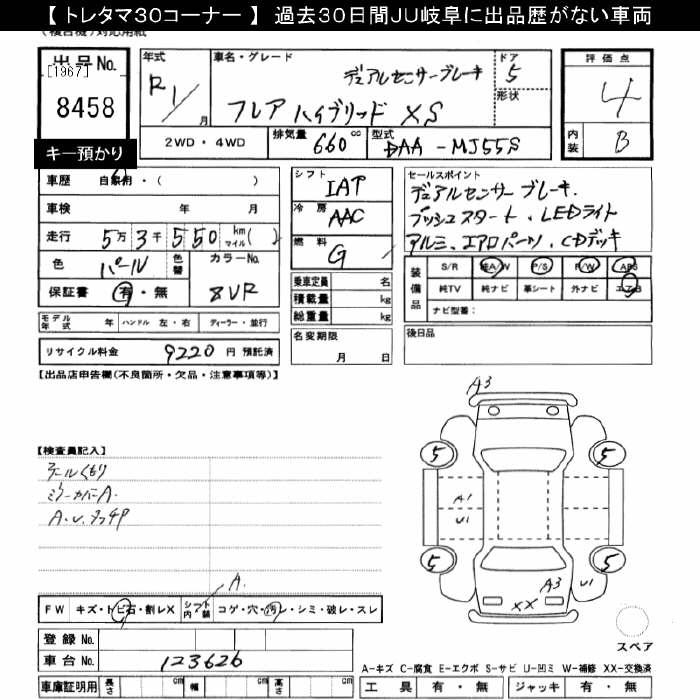 【 トレタマ30コーナー 】 過去30日間JU岐阜に出品歴がない車両
出品No.
[1967]
8458
キー預かり
年式
R1/月
車名・グレード
デュアルセンサーブレーキ
フレア ハイブリッド XS
ドア
5
形状
2WD ・ 4WD
排気量 660 cc
型式 DAA - MJ55S
評価点
4
内装 B
車歴 自家用 ・ ( )
車検 年 月
走行 5万 3千 550 km マイル ( )
色 パール 色替
カラーNo. ZVR
保証書 有 ・ 無
シフト IAT
冷房 AAC
燃料 G
乗車定員 名
積載量 kg
総重量 kg
セールスポイント
デュアルセンサーブレーキ.
プッシュスタート、LEDライト
アルミ、エアロパーツ、CDデッキ
装備品
S/R 純A/W P/S P/W ABS
純TV 純ナビ 革シート 外ナビ エアB
ナビ型番:
モデル年式 年 ハンドル 左・右 ディーラー・並行
リサイクル料金 9220 円 預託済
名変期限
月 日
後日品
【出品店申告欄(不良箇所・欠品・注意事項等)】
【検査員記入】
ミラーカバーA.
A.U.タッチP
A3
5
5
A1
U1
5
5
A3
U1
XX
A.
FW キズ・トビ石・割レX
シフト 内装
コゲ・穴・汚レ・シミ・破レ・スレ
登録 No.
車台 No. 123626
車庫証明用 長さ cm 幅 cm 高さ cm
スペア
A-キズ C-腐食 E-エクボ S-サビ U-凹ミ W-補修 XX-交換済
工具 有 ・ 無 ジャッキ 有 ・ 無